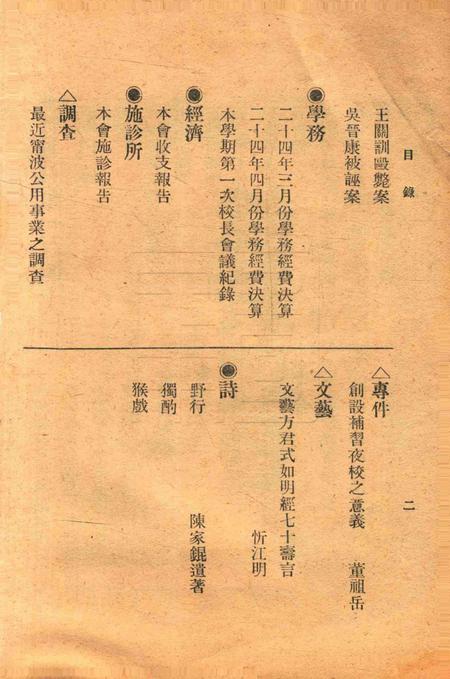 目錄
王關訓毆斃案
吳晉康被誣案
◉學務
二十四年三月份學務經費決算
二十四年四月份學務經費決算
本學期第一次校長會議紀錄
◉經濟
本會收支報告
◉施診所
本會施診報告
△調查
最近甯波公用事業之調查
二
△專件
創設補習夜校之意義　董祖岳
△文藝
文藝方君式如明經七十壽言
忻江明
◉詩
野行　陳家錕遺著
獨酌
猴戲